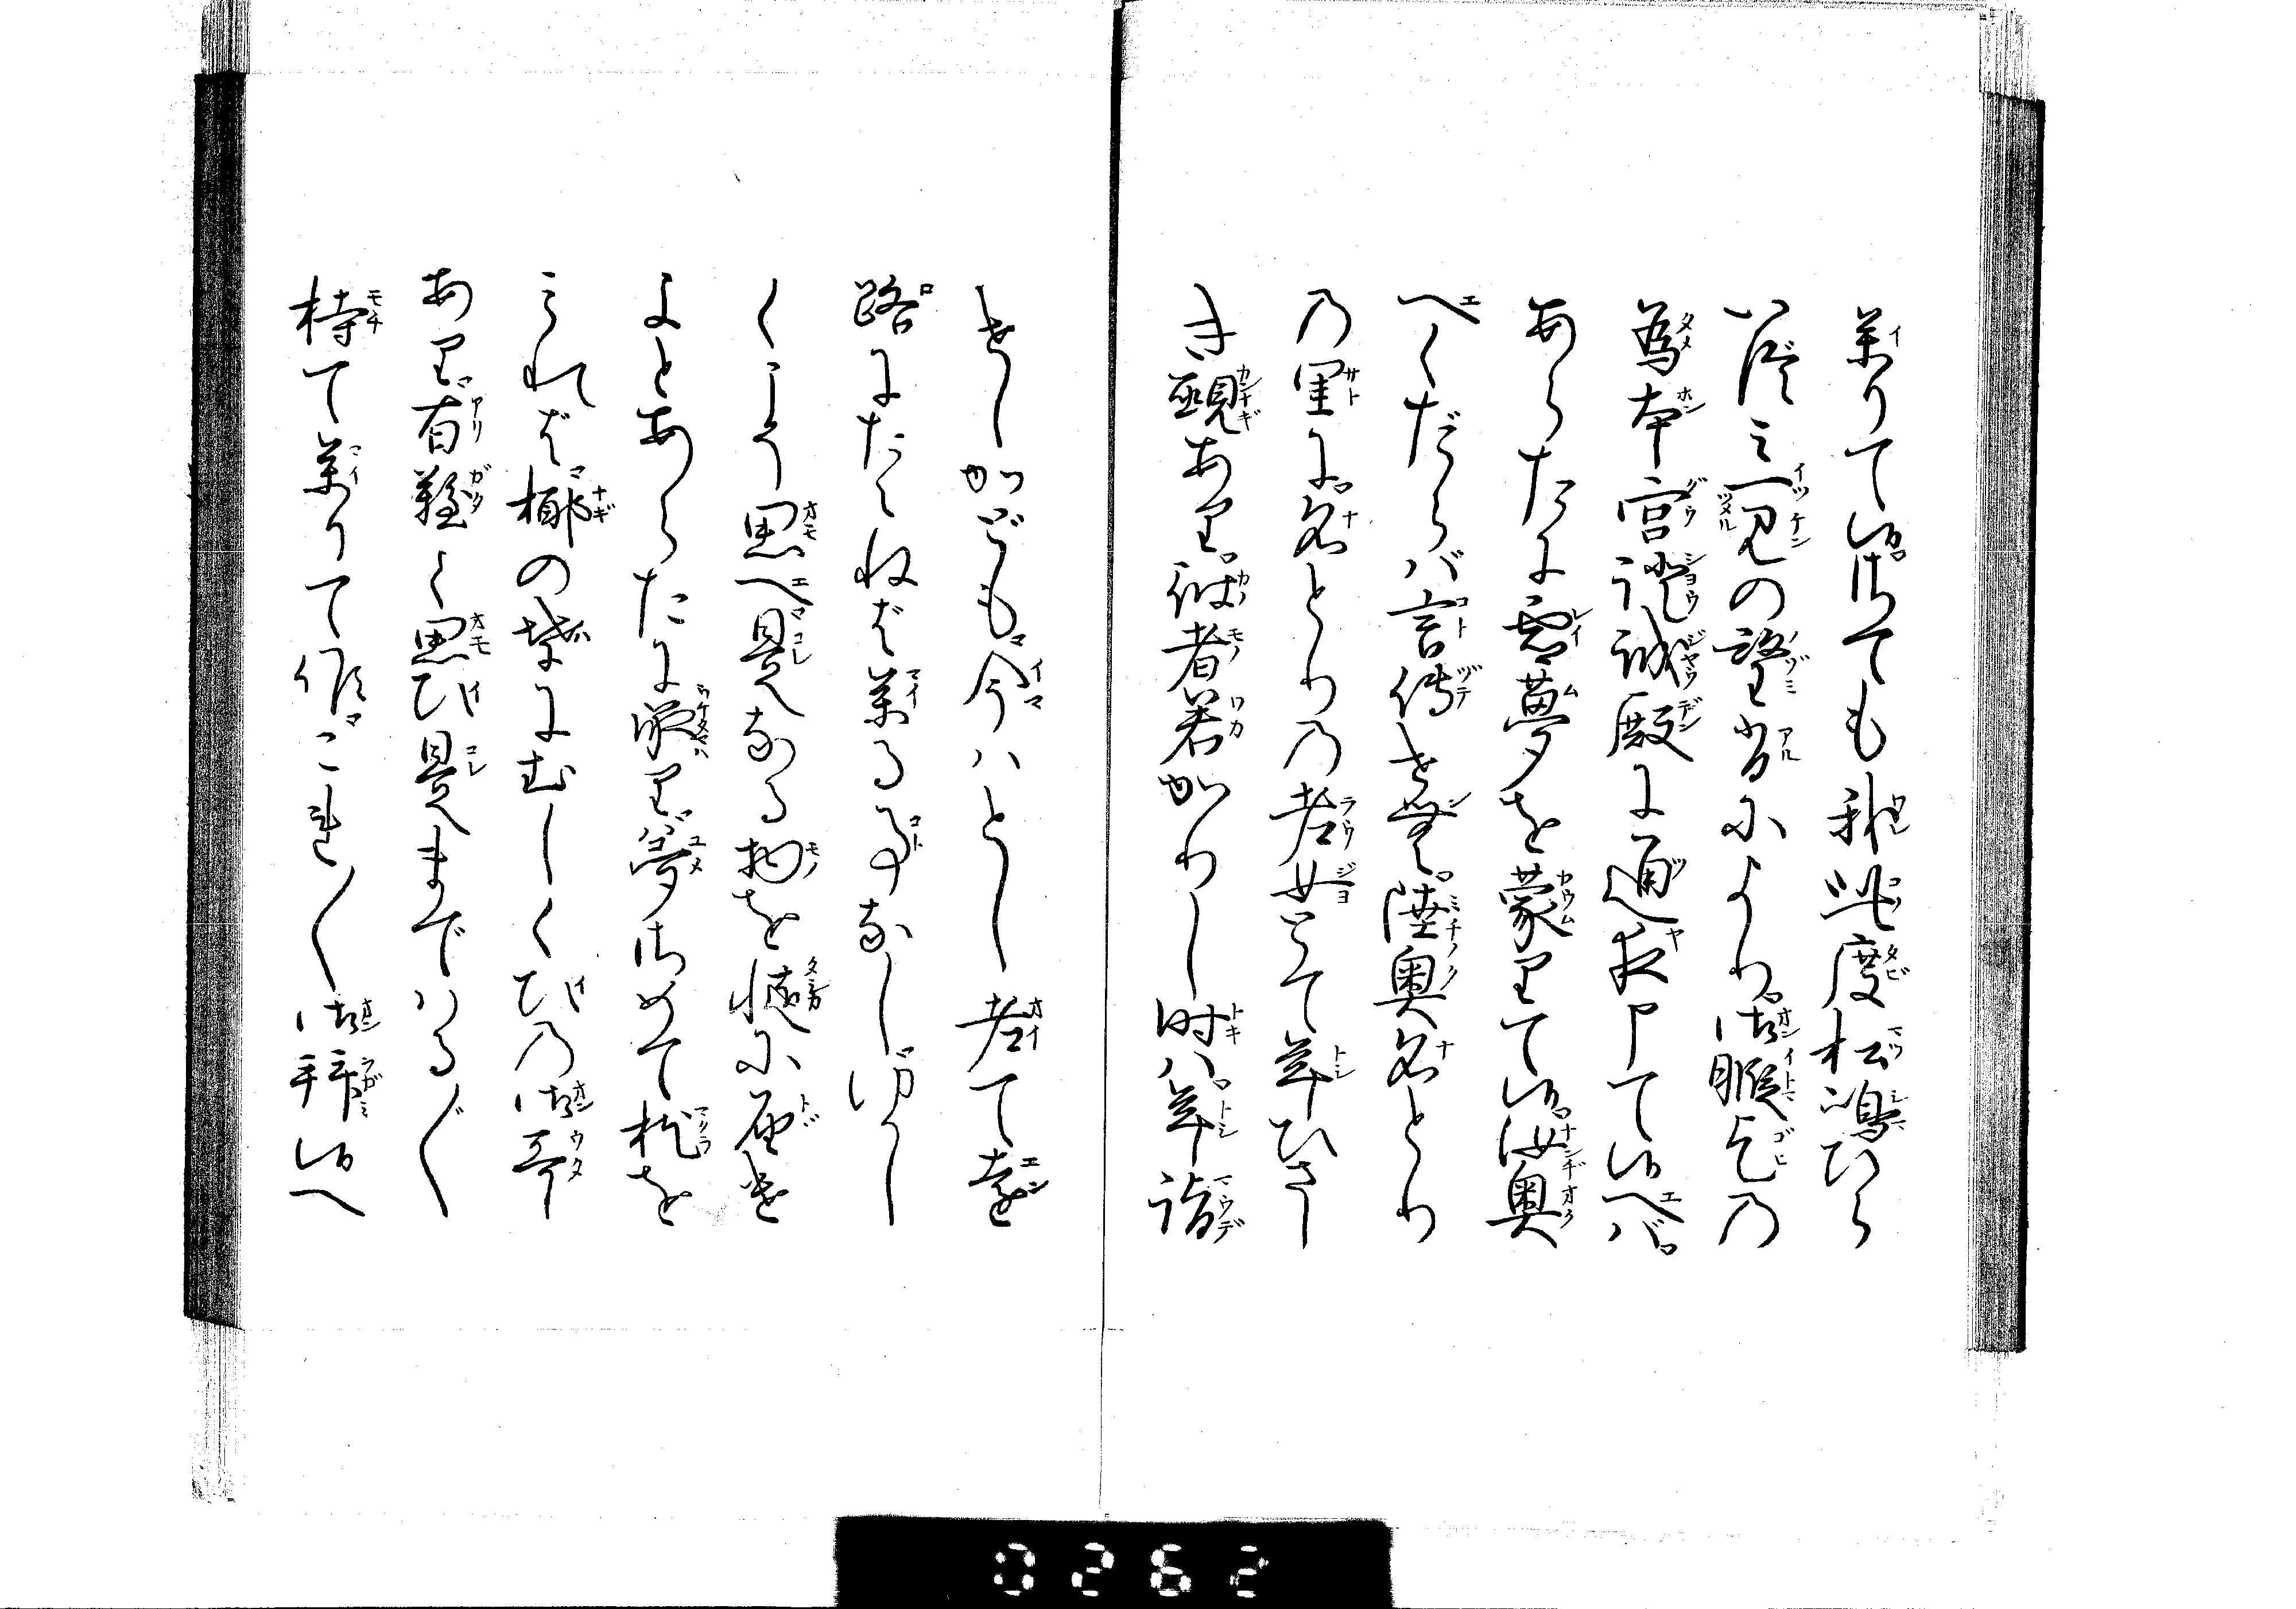 参りて候。さても我此度松嶋ひら
いづミ一見の望有によわ。御暇乞の
為本宮証誠殿に通夜申て候へバ。
あらたに霊夢を蒙りて候。汝奥
へくだらバ言傳せん。陸奥名とわ
の里に。名とわの老女とて年ひさし
き覡あり。彼者若かりし時ハ。年詣
せしかども。今ハとし老て遠
路にたえねば参る事なし。ゆかし
くこそ思へ。是なる物を慥に届け
よとあらたに承り。夢さめて枕を
みれば。梛の葉にむしくひの御哥
あり。有難く思ひ是まではる〲
持て参りて候。これ〳〵御拝候へ
0262